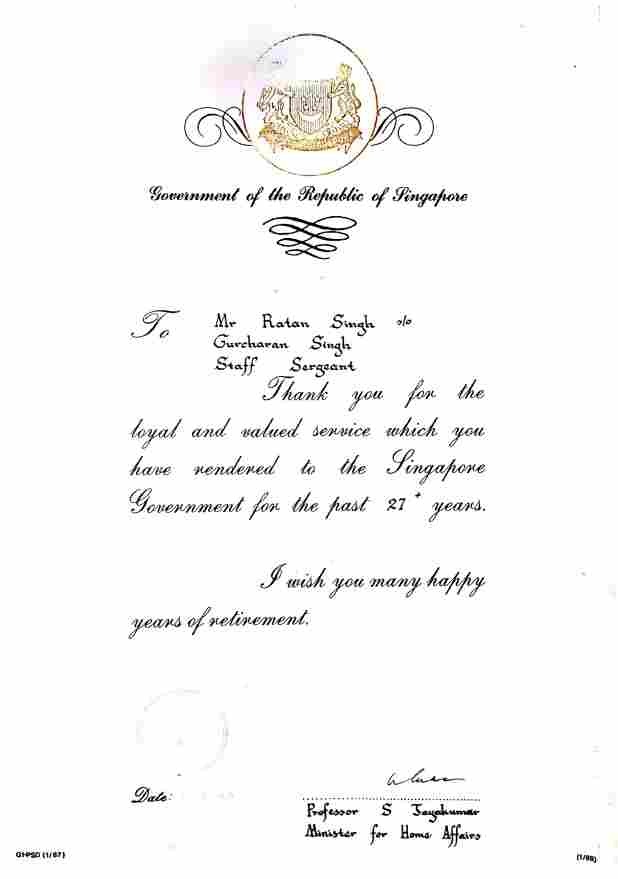 Government of the Republic of Singapore
To Mr Ratan Singh s/o
Gurcharan Singh
Staff Sergeant
Thank you for the
loyal and valued service which you
have rendered to the Singapore
Government for the past 27+ years.
I wish you many happy
years of retirement.
Date:
Professor S Jayakumar
Minister for Home Affairs
GHPSD (1/87)
(1/88)